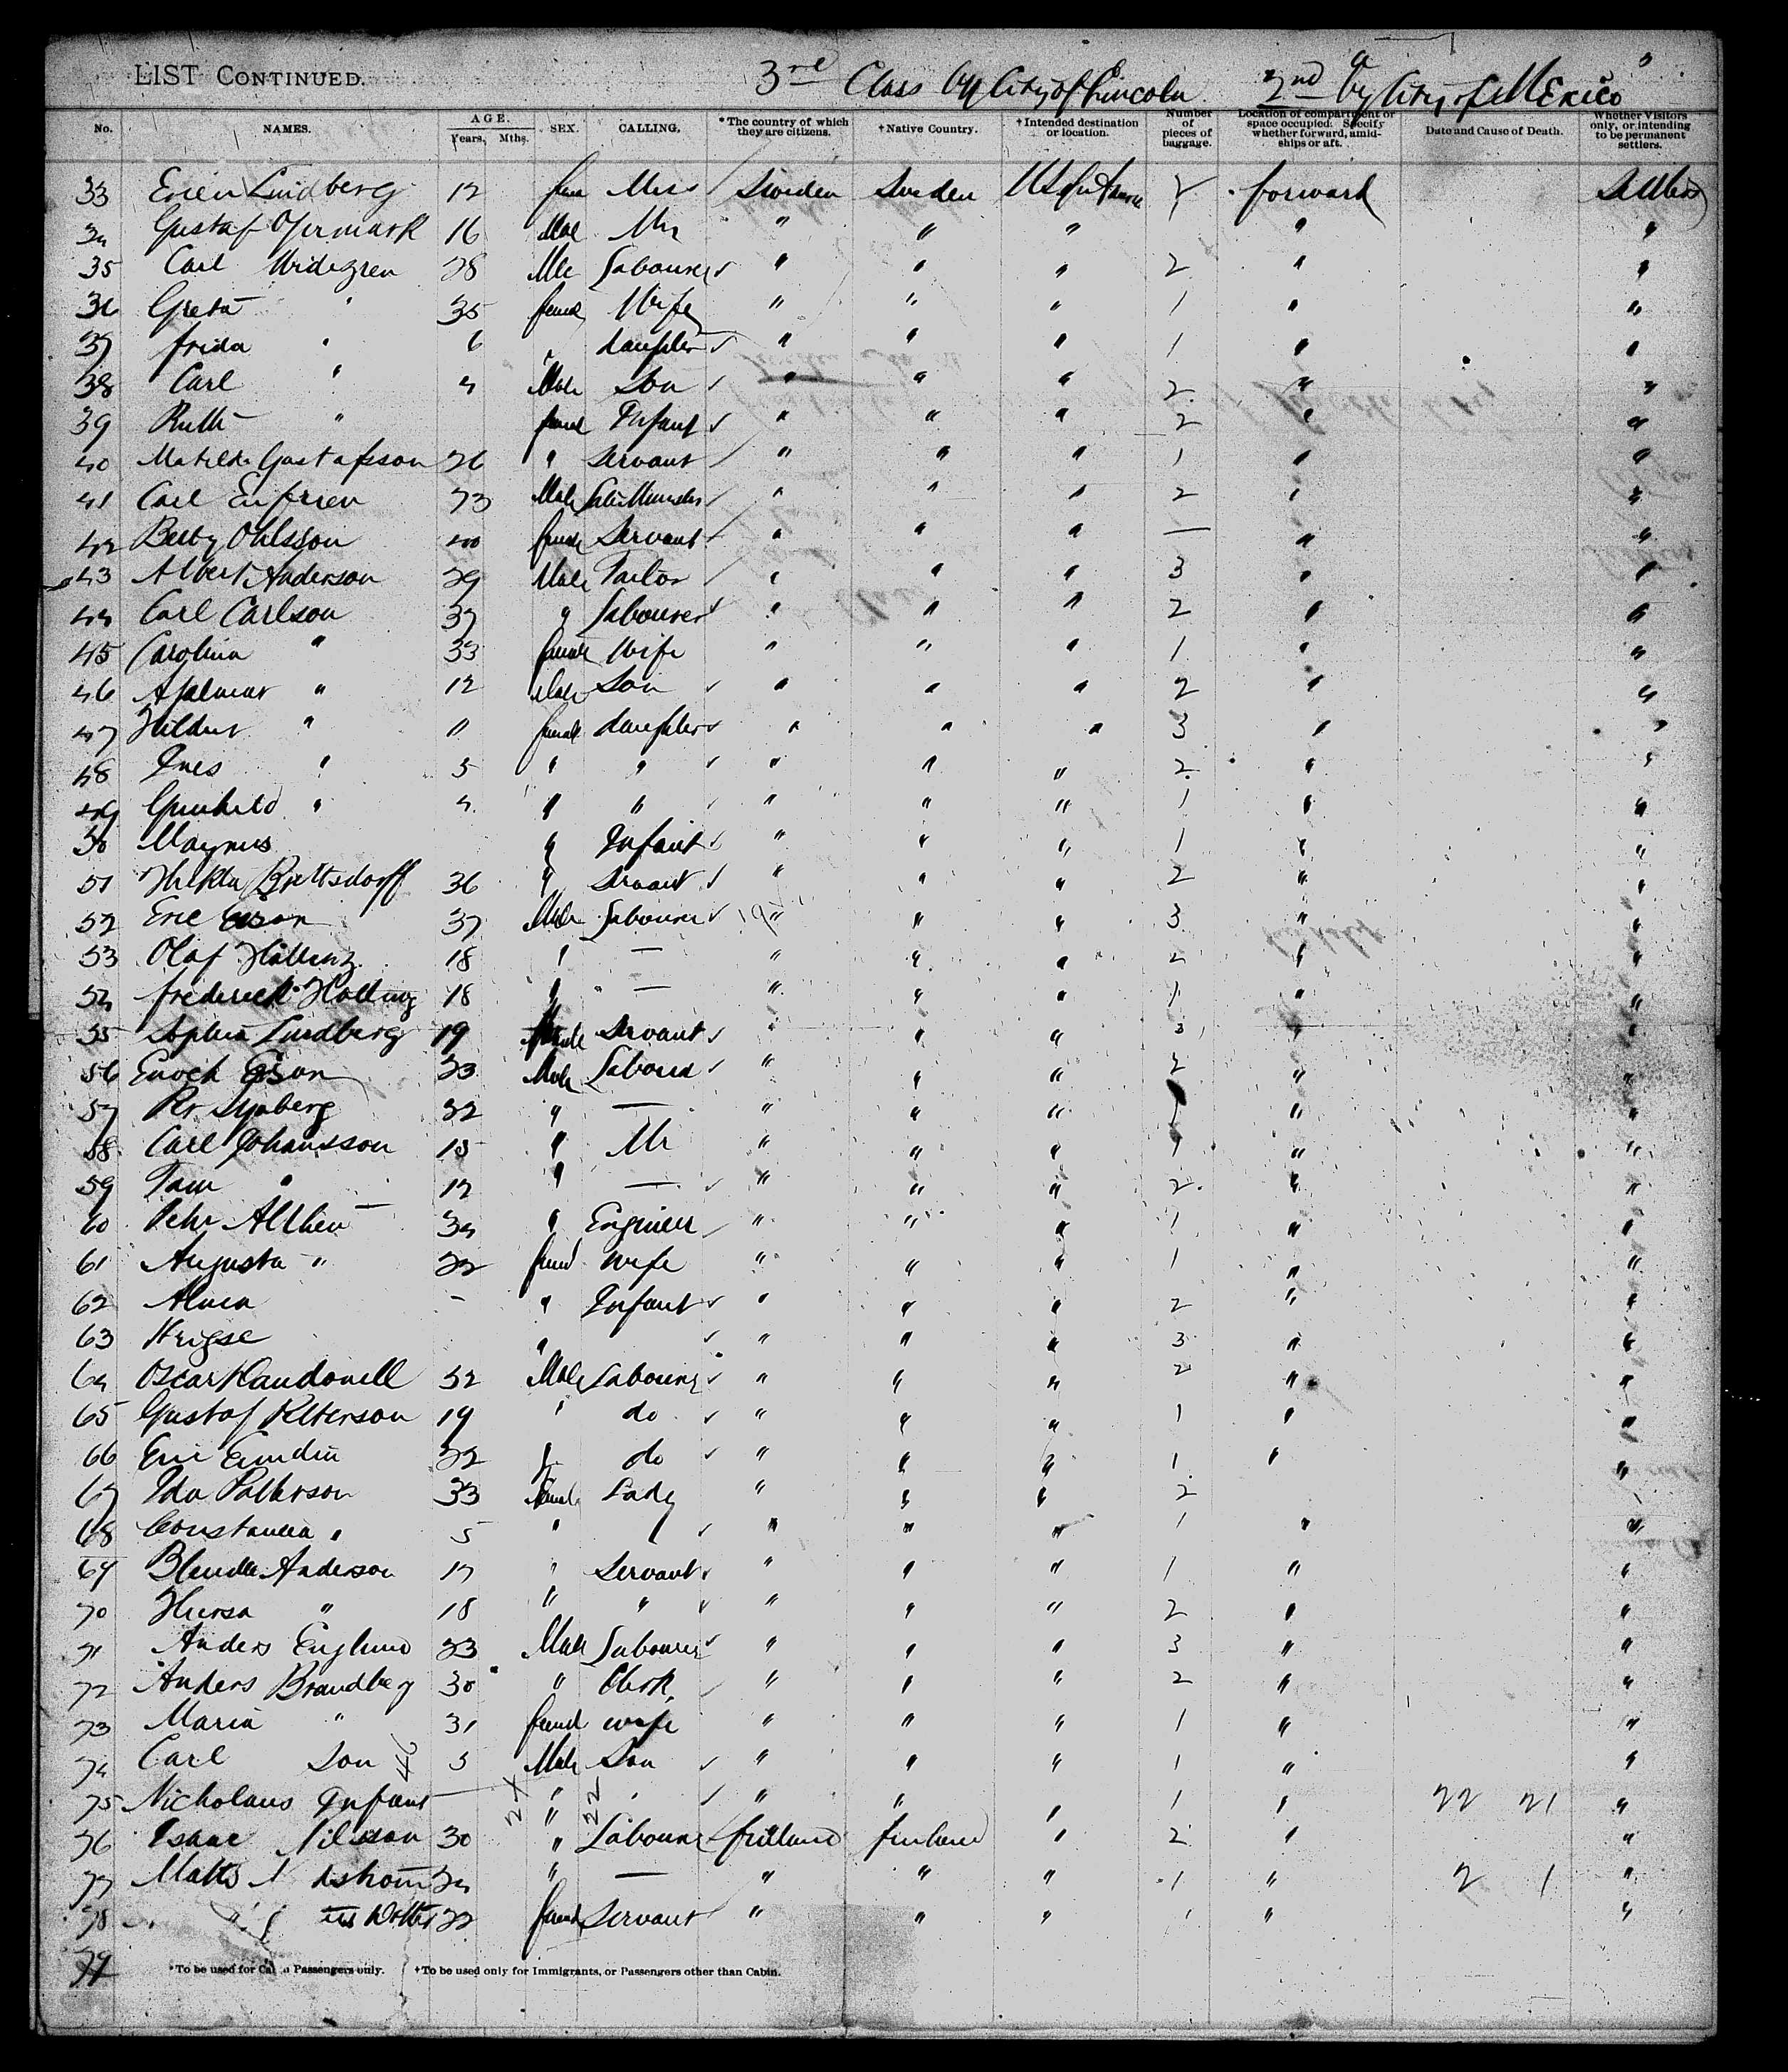 LIST CONTINUED. 3rd Class by City of Lincoln 2nd by City of Mexico
No. NAMES. AGE. Years, Mths. SEX. CALLING. *The country of which they are citizens. †Native Country. †Intended destination or location. Number of pieces of baggage. Location of compartment or space occupied. Specify whether forward, amidships or aft. Date and Cause of Death. Whether Visitors only, or intending to be permanent settlers.
33 Lindberg 12 fem Miss Sweden Sweden 2 forward Settlers
34 Gustaf 16 Mal Mr " " " " "
35 Carl Widegren 28 Mle Labourer " " " 2 " "
36 Greta " 35 femal Wife " " " 1 " "
37 Frida " 6 " daughter " " " 1 " "
38 Carl " 4 Male Son " " " 2 " "
39 Ruth " femal Infant " " " 2 " "
40 Matilda Gustafsson 26 " Servant " " " 1 " "
41 Carl 23 Male " " " 2 " "
42 Betty Ohlsson 40 female Servant " " " — " "
43 Albert Anderson 29 Male Tailor " " " 3 " "
44 Carl Carlson 37 " Labourer " " " 2 " "
45 Carolina " 33 female Wife " " " 1 " "
46 Hjalmar " 12 Male Son " " " 2 " "
47 Hildur " 11 female daughter " " " 3 " "
48 Ines " 5 " " " " " 2 " "
49 Gunhild " 4 " " " " " 1 " "
50 Magnus " Infant " " " 1 " "
51 36 " Servant " " " 2 " "
52 Eric 37 Male Labourer " " " 3 " "
53 Olaf 18 " — " " " 2 " "
54 Frederick 18 " — " " " 1 " "
55 Sophia Lindberg 19 Female Servant " " " 3 " "
56 Enoch 23 Male Labourer " " " 2 " "
57 Pr Sjoberg 22 " — " " " 1 " "
58 Carl Johansson 15 " Mr " " " 1 " "
59 " 12 " — " " " 2 " "
60 Pehr Althen 34 " Engineer " " " 1 " "
61 Augusta " 22 femal wife " " " 1 " "
62 Alma - " Infant " " " 2 " "
63 " " " " 3 " "
64 Oscar 32 Male Labourer " " " 2 " "
65 Gustaf Peterson 19 " do " " " 1 " "
66 Eric 22 " do " " " 1 " "
67 Ida Patterson 33 Female Lady " " " 2 "
68 Constancia " 5 " " " " 1 " "
69 Blenda Anderson 17 " Servant " " " 1 " "
70 " 18 " " " " " 2 " "
71 Anders Englund 23 Male Labourer " " " 3 " "
72 Anders Brandberg 30 " Clerk " " " 2 " "
73 Maria " 31 femal wife " " " 1 " "
74 Carl Son 3 Male Son " " " 1 " "
75 Nicholaus Infant " " " " " 1 " 22 21 "
76 Isaac Nilsson 30 " Labourer Finland Finland " 2 " "
77 Matts 24 " — " " " 1 " 2 1 "
78 22 femal Servant " " " 1 " "
79
*To be used for Passengers only. †To be used only for Immigrants, or Passengers other than Cabin.